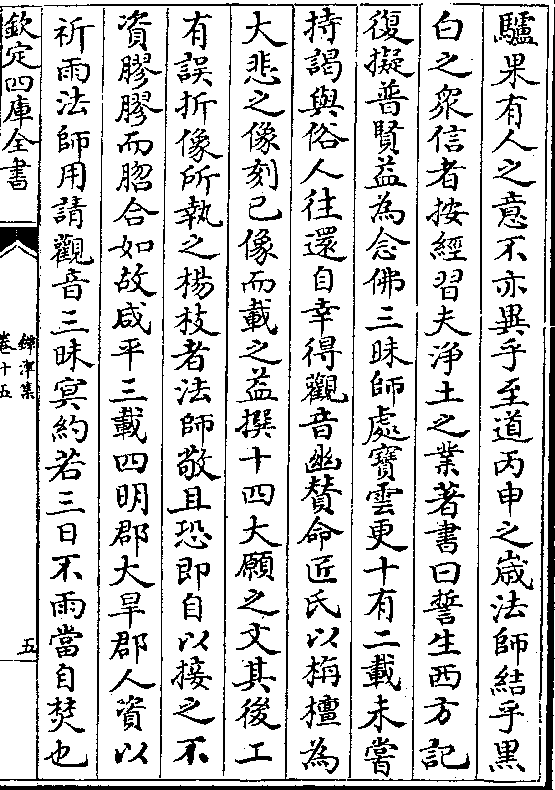 驢果有人之意不亦異乎至道丙申之歳法師結乎黒
白之衆信者按經習夫淨土之業著書曰誓生西方記
復擬普賢益為念佛三昧師處寶雲更十有二載未嘗
持謁與俗人往還自幸得觀音幽賛命匠氏以栴檀為
大悲之像刻已像而載之益撰十四大願之文其後工
有誤折像所執之楊枝者法師敬且恐即自以接之不
資膠膠而脗合如故咸平三載四明郡大旱郡人資以
祈雨法師用請觀音三昧冥約若三日不雨當自焚也
欽定四庫全書
鐔津集
卷十五
五